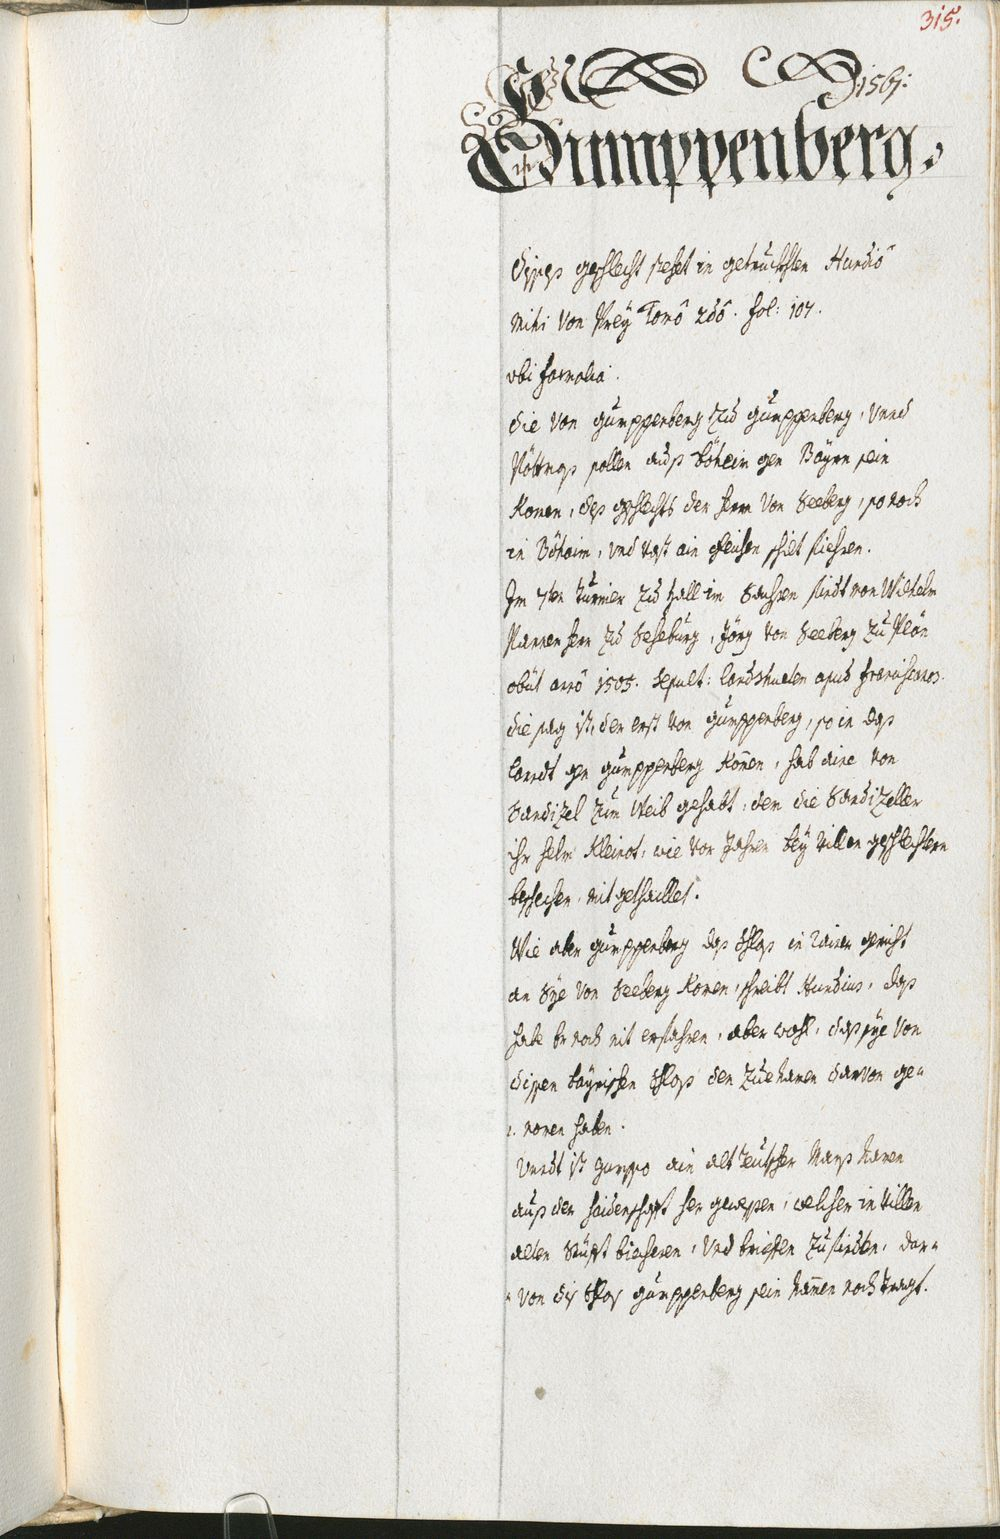 315.
1565:
Gumppenberg.
Dises geschlecht stehet in getruckhten Hundio
mihi Von Prey Tomo 2do. fol: 107.
vbi formalia.
Die Von gumppenberg zu gumppenberg, Vnnd
Pöttmes sollen auß Böheim gen Bayrn sein
Komen, des geschlechts der herrn Von Seeberg, so noch
in Böhaim, vnd vast ain gleichen schilt fiehren.
Im 7ten turnier zu Hall in Sachsen findt man Wilhelm
Pannerherr zu Seheburg, Jörg von Seeberg zu Plan
obiit anno 1505. sepult: Landshuetten apud franciscanos.
die sag ist, der erst von gumppenberg, so in das
Landt gen gumppenberg Komen, hab aine von
Sandizel zum Weib gehabt, dem die Sandizeller
ihr helm Kleinot, wie vor Jahren bey villen geschlechtern
beschehen, mitgethaillet.
Wie aber gumppenberg das Schloß in Rainer gericht
an Sye Von Seeberg Komen, schreibt Hundius, das
habe er noch nit erfahren, aber wohl, daß sye Von
disem bayrischen Schloß den Zuenamen darvon ge=
nomen haben.
Vnndt ist gumppo ain alt teutscher Mans Namen
auß der haidenschafft her gewessen, welcher in villen
alten Stüfft biecheren, Vnd briefen zu finden, dar=
von diß Schloß gumppenberg sein Namen noch tragt.